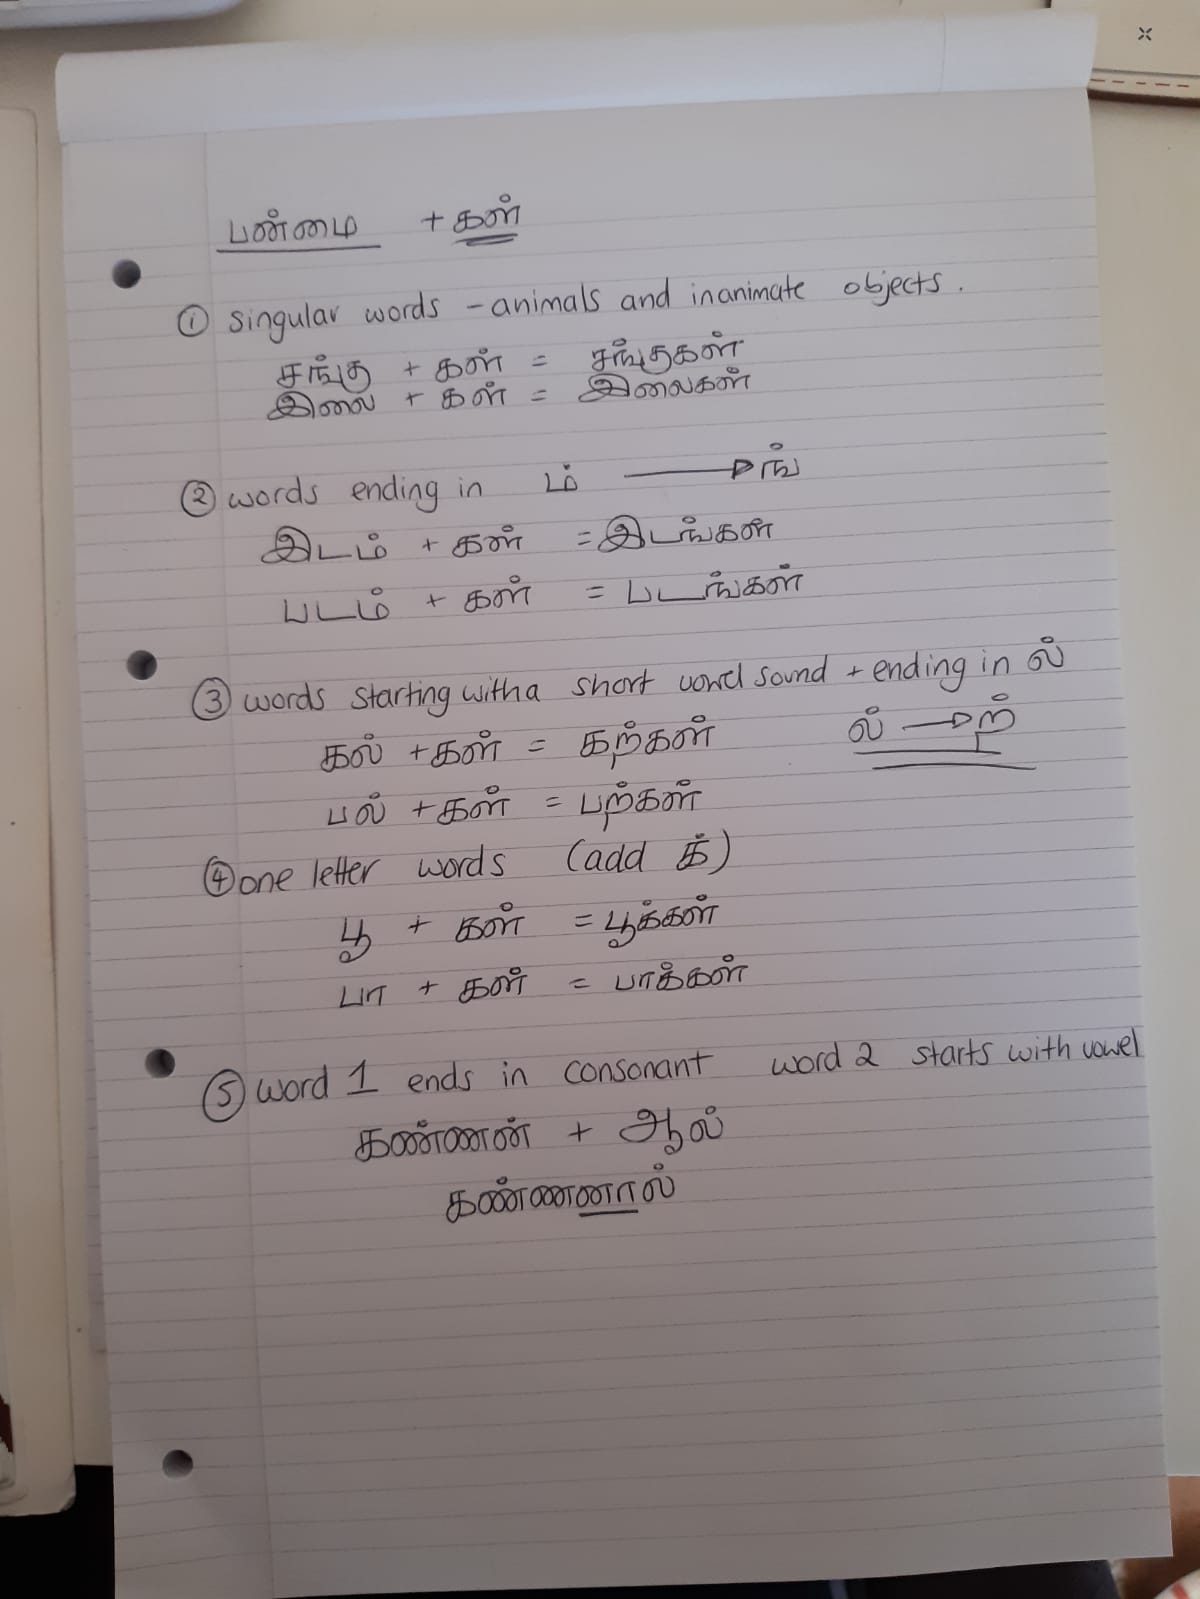 பன்மை + கள்
① singular words - animals and inanimate objects.
சங்கு + கள் = சங்குகள்
இலை + கள் = இலைகள்
② words ending in ம் → ங்
இடம் + கள் = இடங்கள்
படம் + கள் = படங்கள்
③ words starting with a short vowel sound + ending in ல்
கல் + கள் = கற்கள் ல் → ற்
பல் + கள் = பற்கள்
④ one letter words (add க்)
பூ + கள் = பூக்கள்
பா + கள் = பாக்கள்
⑤ word 1 ends in consonant word 2 starts with vowel
கண்ணன் + ஆல்
கண்ணனால்